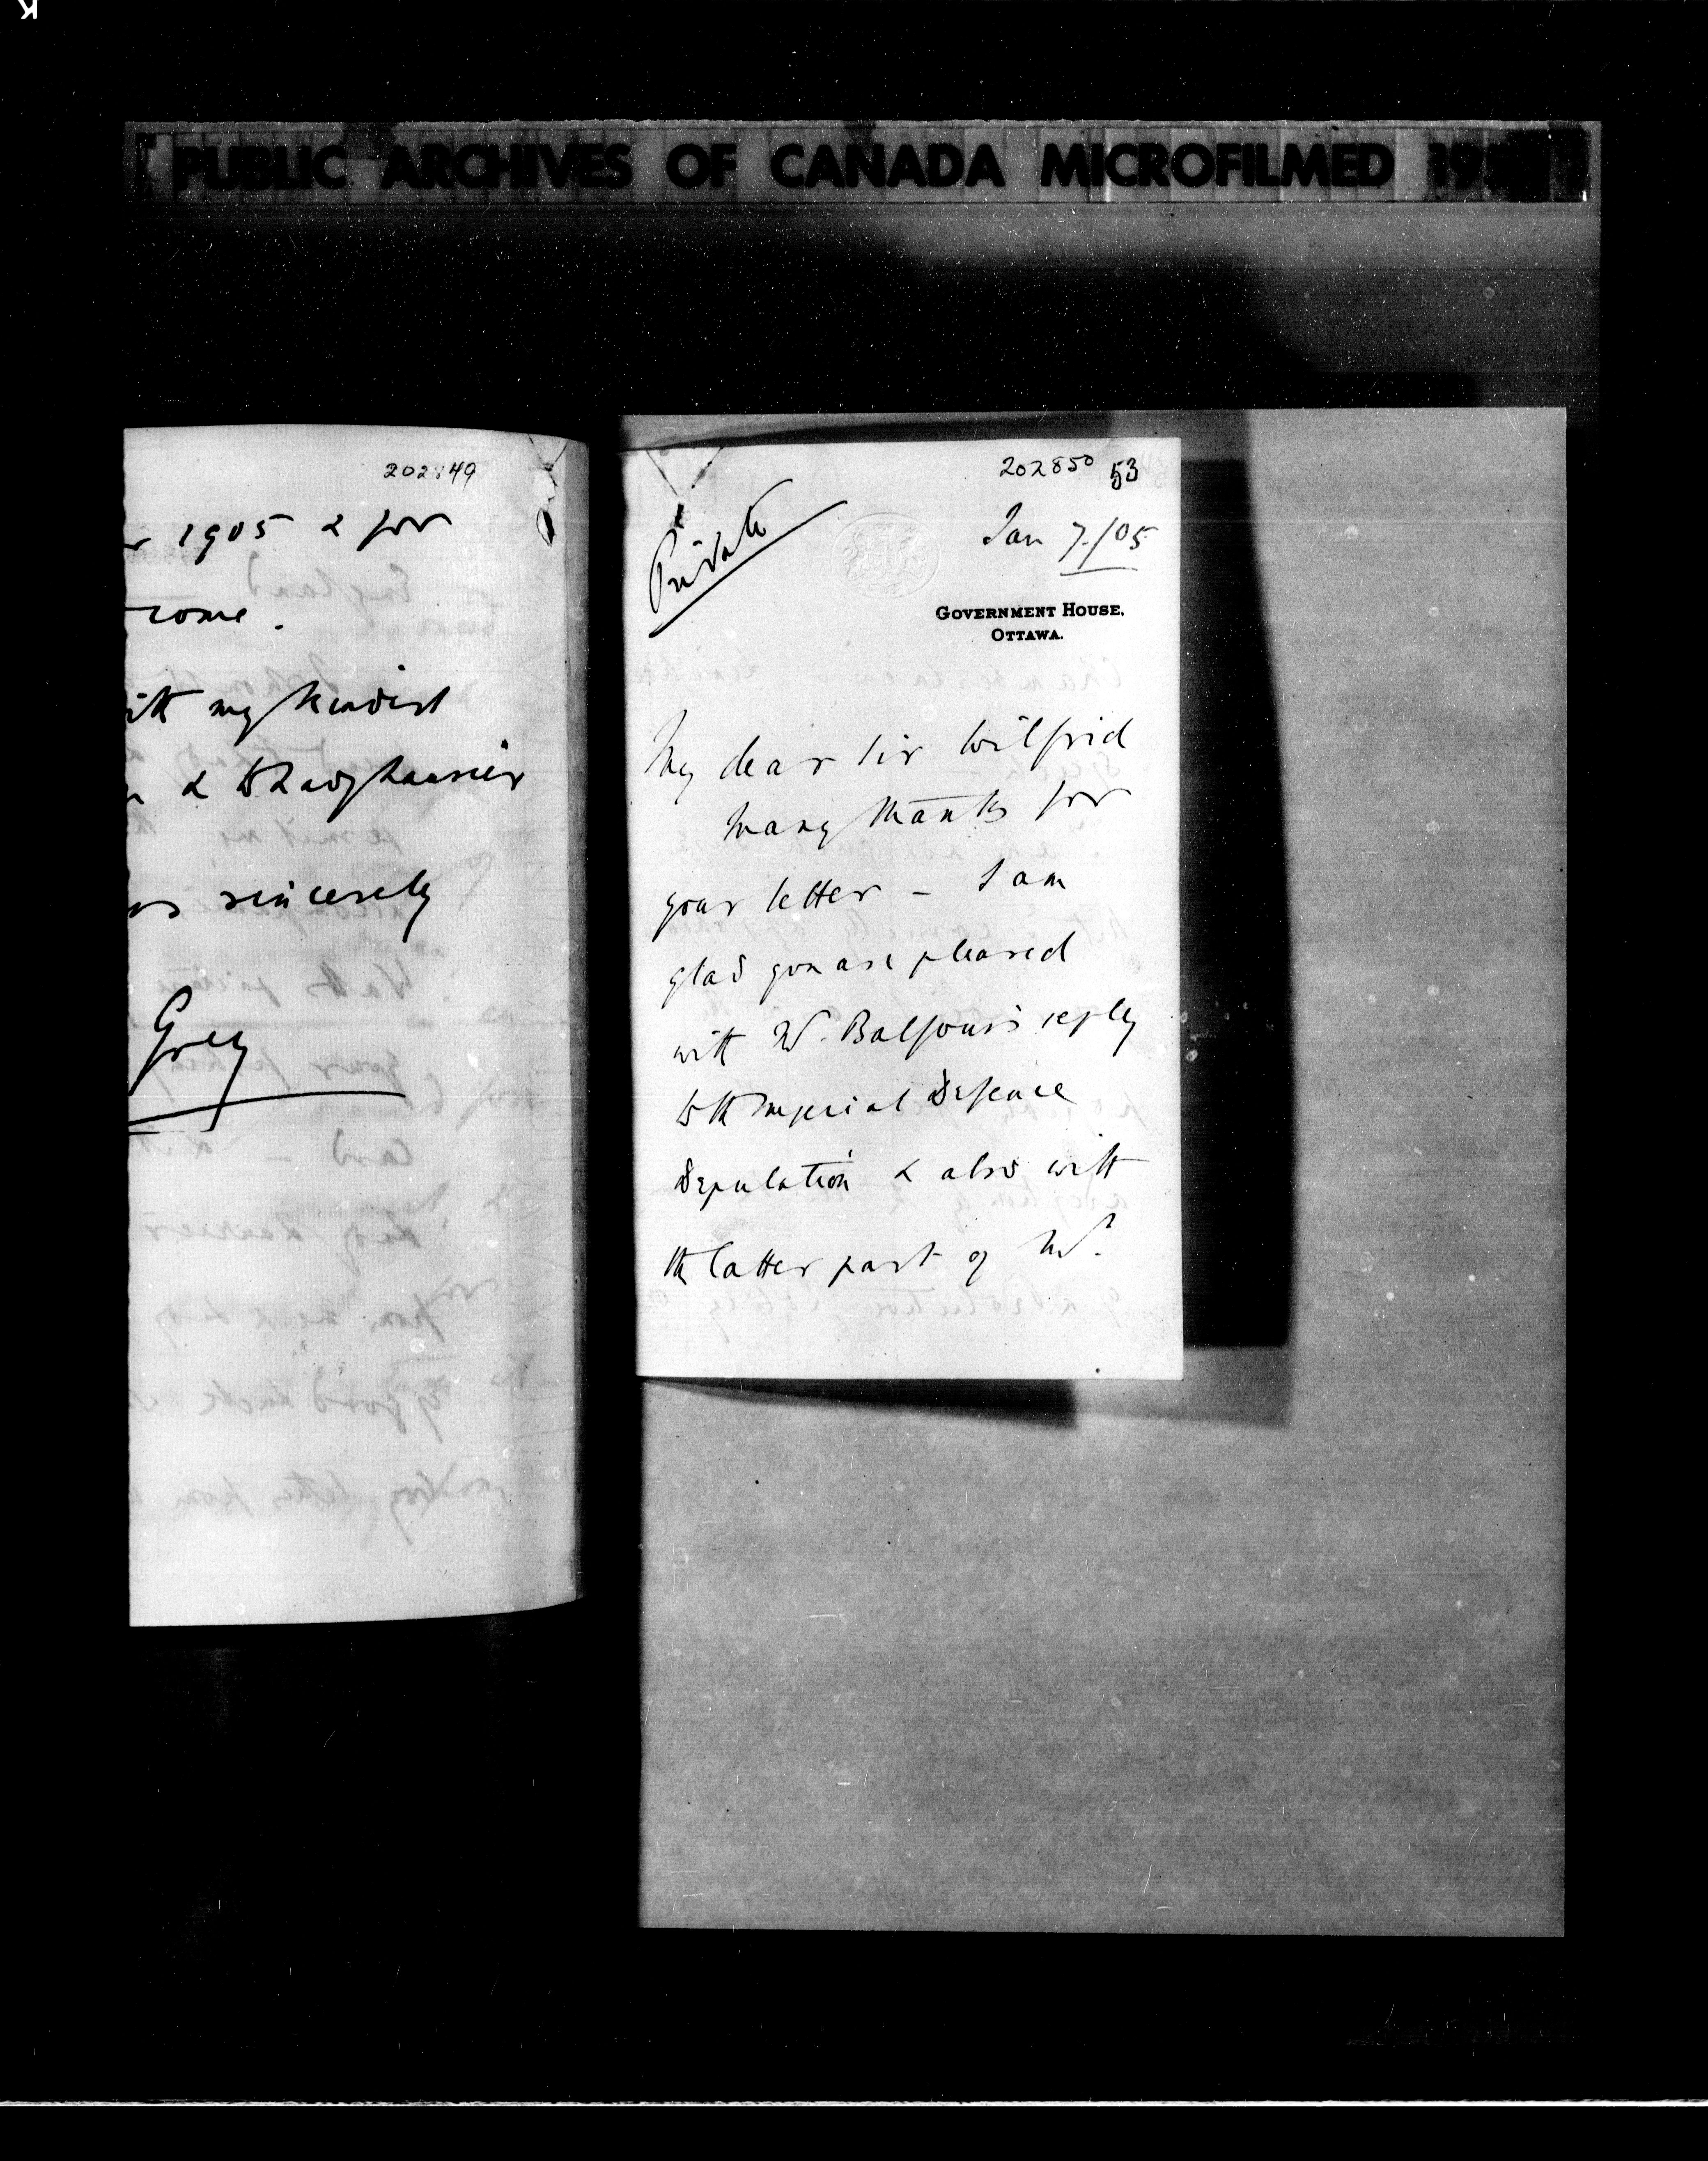 PUBLIC ARCHIVES OF CANADA MICROFILMED 19
202849
1905 & for
come.
ith my kindest
& to Lady Laurier
rs sincerely
Grey
202850 53
Private
Jan 7./05
GOVERNMENT HOUSE,
OTTAWA.
My dear Sir Wilfrid
Many thanks for
your letter – I am
glad you are pleased
with Mr. Balfour's reply
to the Imperial Defence
Deputation & also with
the latter part of Mr.